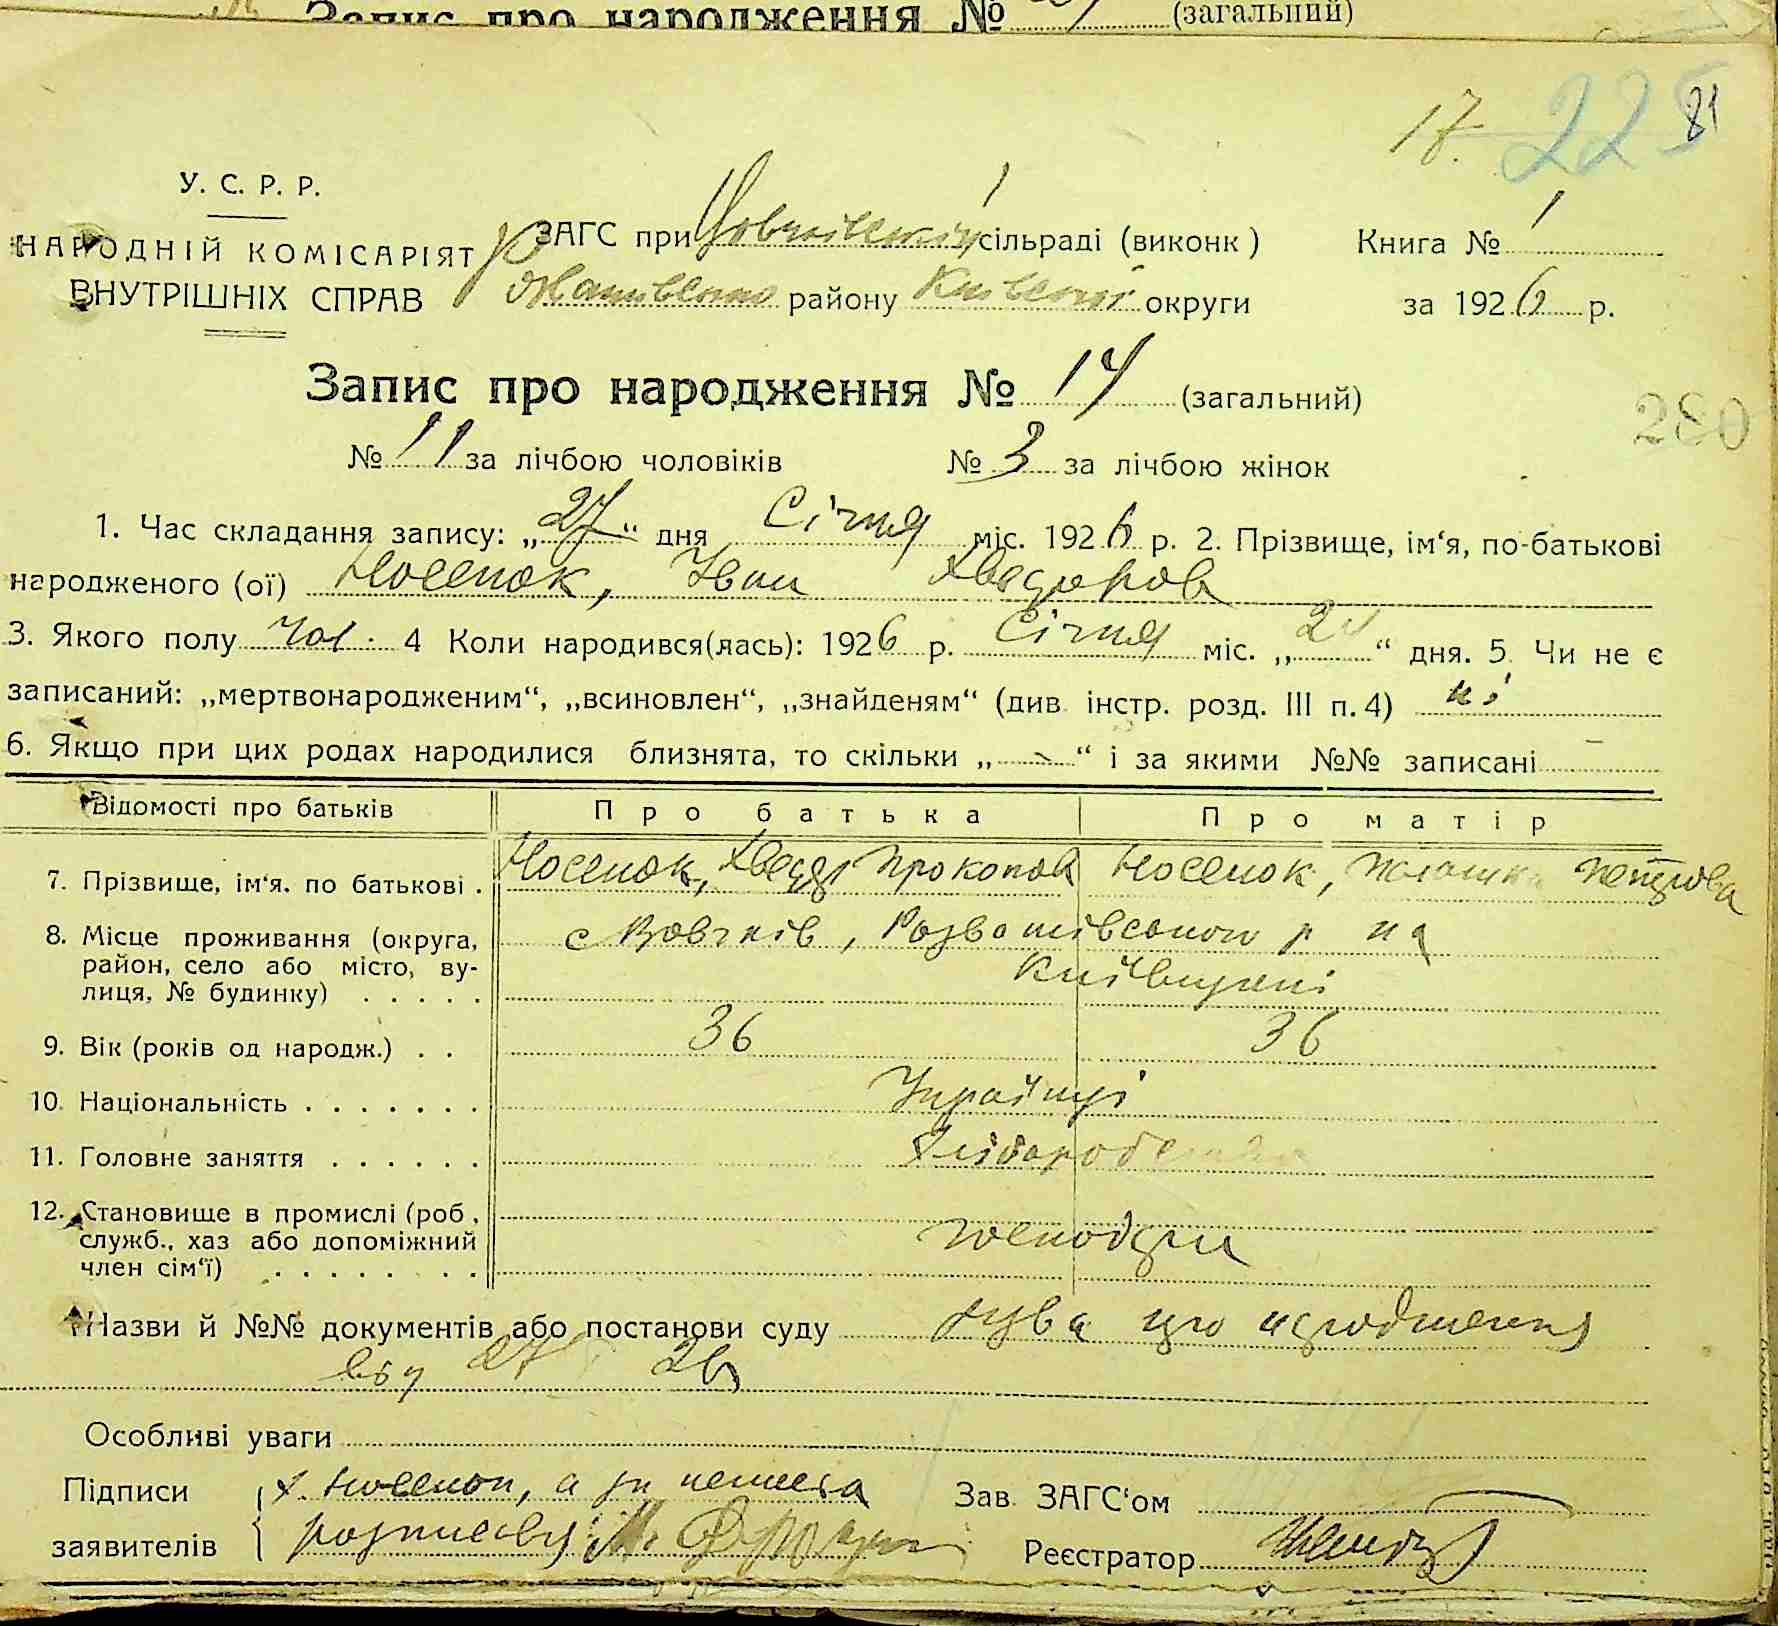 Запис про народження № (загальний)
17. 225 81
У. С. Р. Р.
НАРОДНІЙ КОМІСАРІЯТ
ВНУТРІШНІХ СПРАВ
ЗАГС при сільраді (виконк) Книга № 1
району Київської округи за 1926 р.
Запис про народження № 14 (загальний)
280
№ 11 за лічбою чоловіків № 3 за лічбою жінок
1. Час складання запису: „27“ дня Січня міс. 1926 р. 2. Прізвище, ім‘я, по-батькові
народженого (ої) Носенок, Іван Хведоров
3. Якого полу чол. 4 Коли народився(лась): 1926 р. Січня міс. „24“ дня. 5. Чи не є
записаний: „мертвонародженим“, „всиновлен“, „знайденям“ (див. інстр. розд. III п. 4) ні
6. Якщо при цих родах народилися близнята, то скільки „-“ і за якими №№ записані –
Відомості про батьків Про батька Про матір
7. Прізвище, ім‘я. по батькові . Носенок, Хведір Прокопов Носенок, Петрова
8. Місце проживання (округа, с Вовчків, Розважівського р на
район, село або місто, ву-
лиця, № будинку) . . . . . Київщині
9. Вік (років од народж.) . . 36 36
10. Національність . . . . . . . Українці
11. Головне заняття . . . . . . Хліборобство
12. Становище в промислі (роб.,
служб., хаз або допоміжний
член сім‘ї) . . . . . . .
Назви й №№ документів або постанови суду про народження
від 27 26
Особливі уваги
Підписи Х. Носенок, а за неписьм Зав. ЗАГС‘ом
заявителів розписався М. Реєстратор